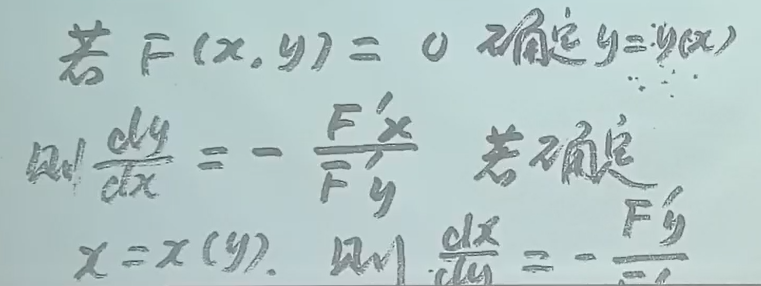 若 F(x, y) = 0 确定 y = y(x)
则 dy/dx = - F'x/F'y 若确定
x = x(y). 则 dx/dy = - F'y/F'